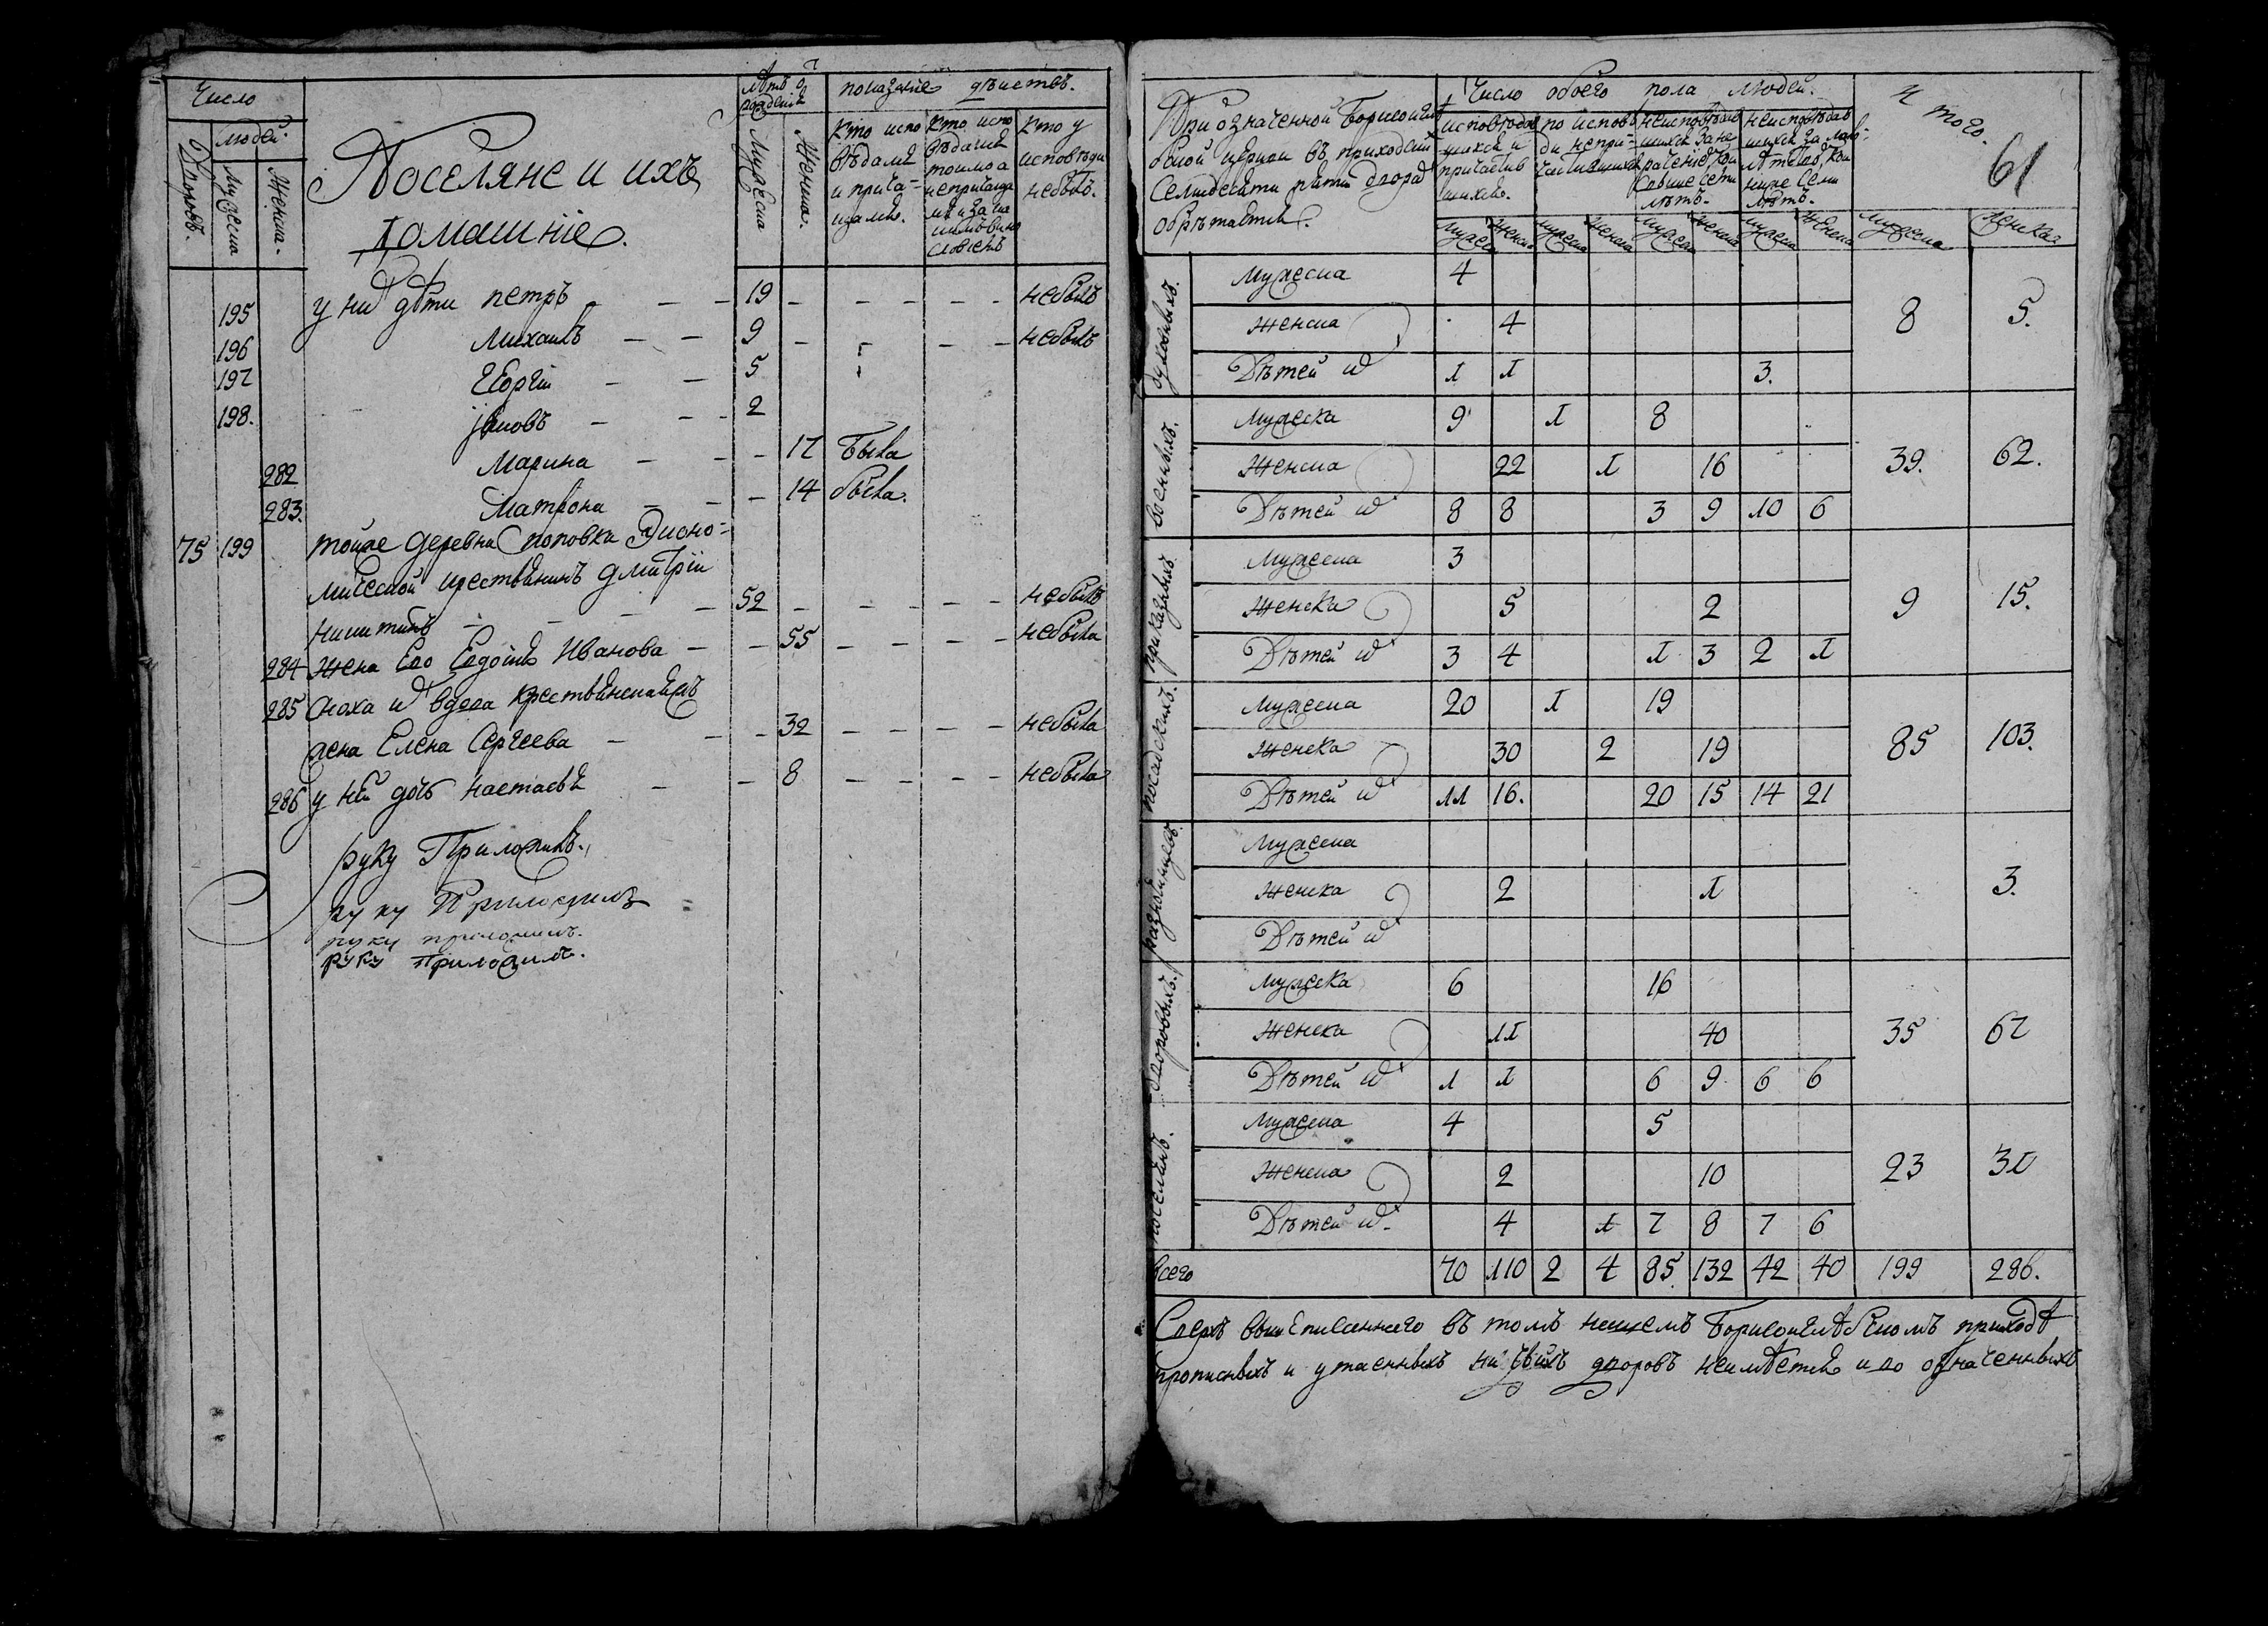 Число
Людей.
Дворовъ.
Мужеска
Женска.
Поселяне и ихъ
домашніе.
Лѣтъ ѿ рожденія
Мужеска
Женска.
показаніе дѣиствъ.
Кто испо
вѣдался
и прича=
щался.
Кто испо
вѣдался
токмо а
непричаща
лся и за ка
кимъ вино
словіемъ
Кто у
исповѣди
небылъ.
195 у ни дѣти петръ 19 небылъ
196 Михаилъ 9 небылъ
197 Георгіи 5
198. іяковъ 2
282 Марина 17 была
283. Матрона 14 была.
75 199 тойже деревни поповки Эконо=
мической крестьянинъ Дмитріи
Никитинъ 52 небылъ
284 Жена Его Евдокія Иванова 55 небыла
285 Сноха и вдова крестьянская
жена Елена Сергеева 32 небыла
286 у ней дочь настасья 8 небыла
руку Приложилъ.
руку Приложилъ
руку приложилъ.
руку Приложилъ.
При означенной Борисоглѣ
бской церкви въ приходѣ
Семидесяти пяти дворах
обрѣтается.
Число обоего пола людей.
исповѣдав
шихся и
причастив
шихся.
по исповѣ
ди непри=
частившихся
неисповѣдав
шихся за не
раченіемъ кои
свыше Семи
лѣтъ.
неисповѣдав
шихся за мало=
лѣтствомъ кои
ниже Семи
лѣтъ.
И того.
61
Мужеска Женска Мужеска Женска Мужеска Женска Мужеска Женска Мужеска Женска
духовныхъ.
Мужеска 4
Женска 4
Дѣтей их 1 1 3.
8 5.
военныхъ.
Мужеска 9 1 8
Женска 22 1 16
Дѣтей их 8 8 3 9 10 6
39. 62.
приказныхъ
Мужеска 3
Женска 5 2
Дѣтей их 3 4 1 3 2 1
9 15.
посадскихъ.
Мужеска 20 1 19
Женска 30 2 19
Дѣтей их 11 16. 20 15 14 21
85 103.
разночинцевъ
Мужеска
Женска 2 1
Дѣтей их
3.
дворовыхъ.
Мужеска 6 16
Женска 11 40
Дѣтей их 1 1 6 9 6 6
35 67
поселянъ.
Мужеска 4 5
Женска 2 10
Дѣтей их 4 1 7 8 7 6
23 31
Всего 70 110 2 4 85 132 42 40 199 286.
Сверхъ вышеписаннаго въ томъ нашемъ Борисоглѣбскомъ приходѣ
прописныхъ и утаенныхъ ни чьихъ дворовъ неимѣется и во означенныхъ